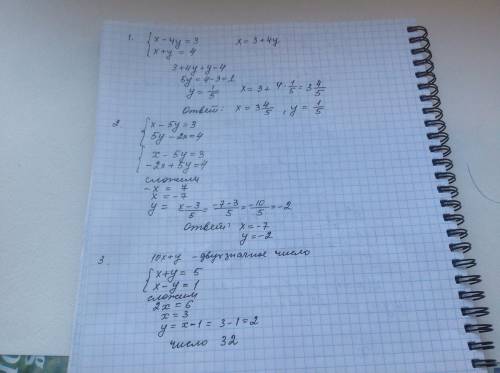 1. { x - 4y = 3     x = 3 + 4y
x + y = 4
3 + 4y + y = 4
5y = 4 - 3 = 1
y = 1/5   x = 3 + 4·1/5 = 3 4/5
Ответ: x = 3 4/5, y = 1/5
2 { x - 5y = 3
5y - 2x = 4
{ x - 5y = 3
-2x + 5y = 4
сложим
-x = 7
x = -7
y = x-3/5 = -7-3/5 = -10/5 = -2
Ответ: x = -7
y = -2
3. 10x + y - двухзначное число
{ x + y = 5
x - y = 1
сложим
2x = 6
x = 3
y = x - 1 = 3 - 1 = 2
число 32